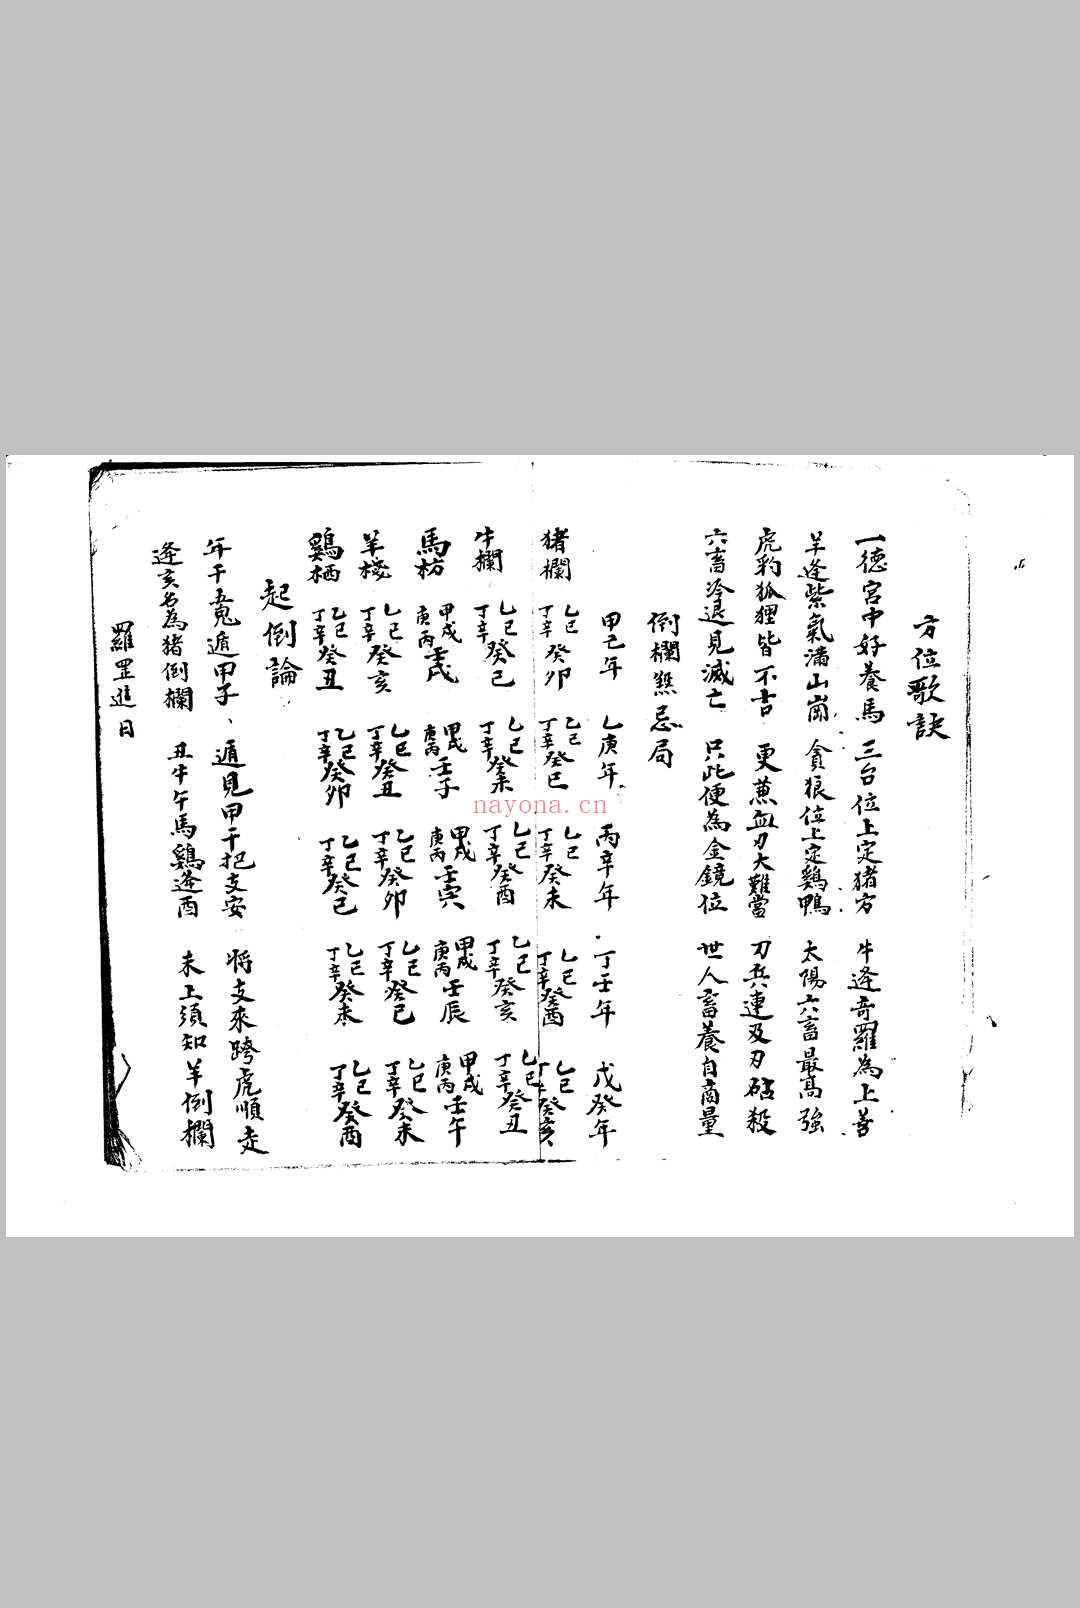 方位歌訣
一德宮中好養馬 三台位上定猪方 牛逢奇羅為上善
羊逢紫氣滿山崗 貪狼位上定鷄鴨 太陽六畜最高強
虎豹狐狸皆不吉 更蕙血刃大難當 刀兵連及刃砧殺
六畜冷退見滅亡 只此便為金鏡位 世人畜養自商量
倒欄 忌局
甲己年 乙庚年 丙辛年 丁壬年 戊癸年
猪欄 乙巳丁辛癸卯 乙巳丁辛癸巳 乙巳丁辛癸未 乙巳丁辛癸酉 乙巳丁辛癸亥
牛欄 乙巳丁辛癸巳 乙巳丁辛癸未 乙巳丁辛癸酉 乙巳丁辛癸亥 乙巳丁辛癸丑
馬枋 甲戌庚丙壬戌 甲戌庚丙壬子 甲戌庚丙壬寅 甲戌庚丙壬辰 甲戌庚丙壬午
羊棧 乙巳丁辛癸亥 乙巳丁辛癸丑 乙巳丁辛癸卯 乙巳丁辛癸巳 乙巳丁辛癸未
鷄栖 乙巳丁辛癸丑 乙巳丁辛癸卯 乙巳丁辛癸巳 乙巳丁辛癸未 乙巳丁辛癸酉
起倒論
年干五鬼遁甲子、遁見甲干把支安 將支來跨虎順走
逢亥名為猪倒欄 丑牛午馬鷄逢酉 未上須知羊倒欄
羅罡進日
nayona.cn